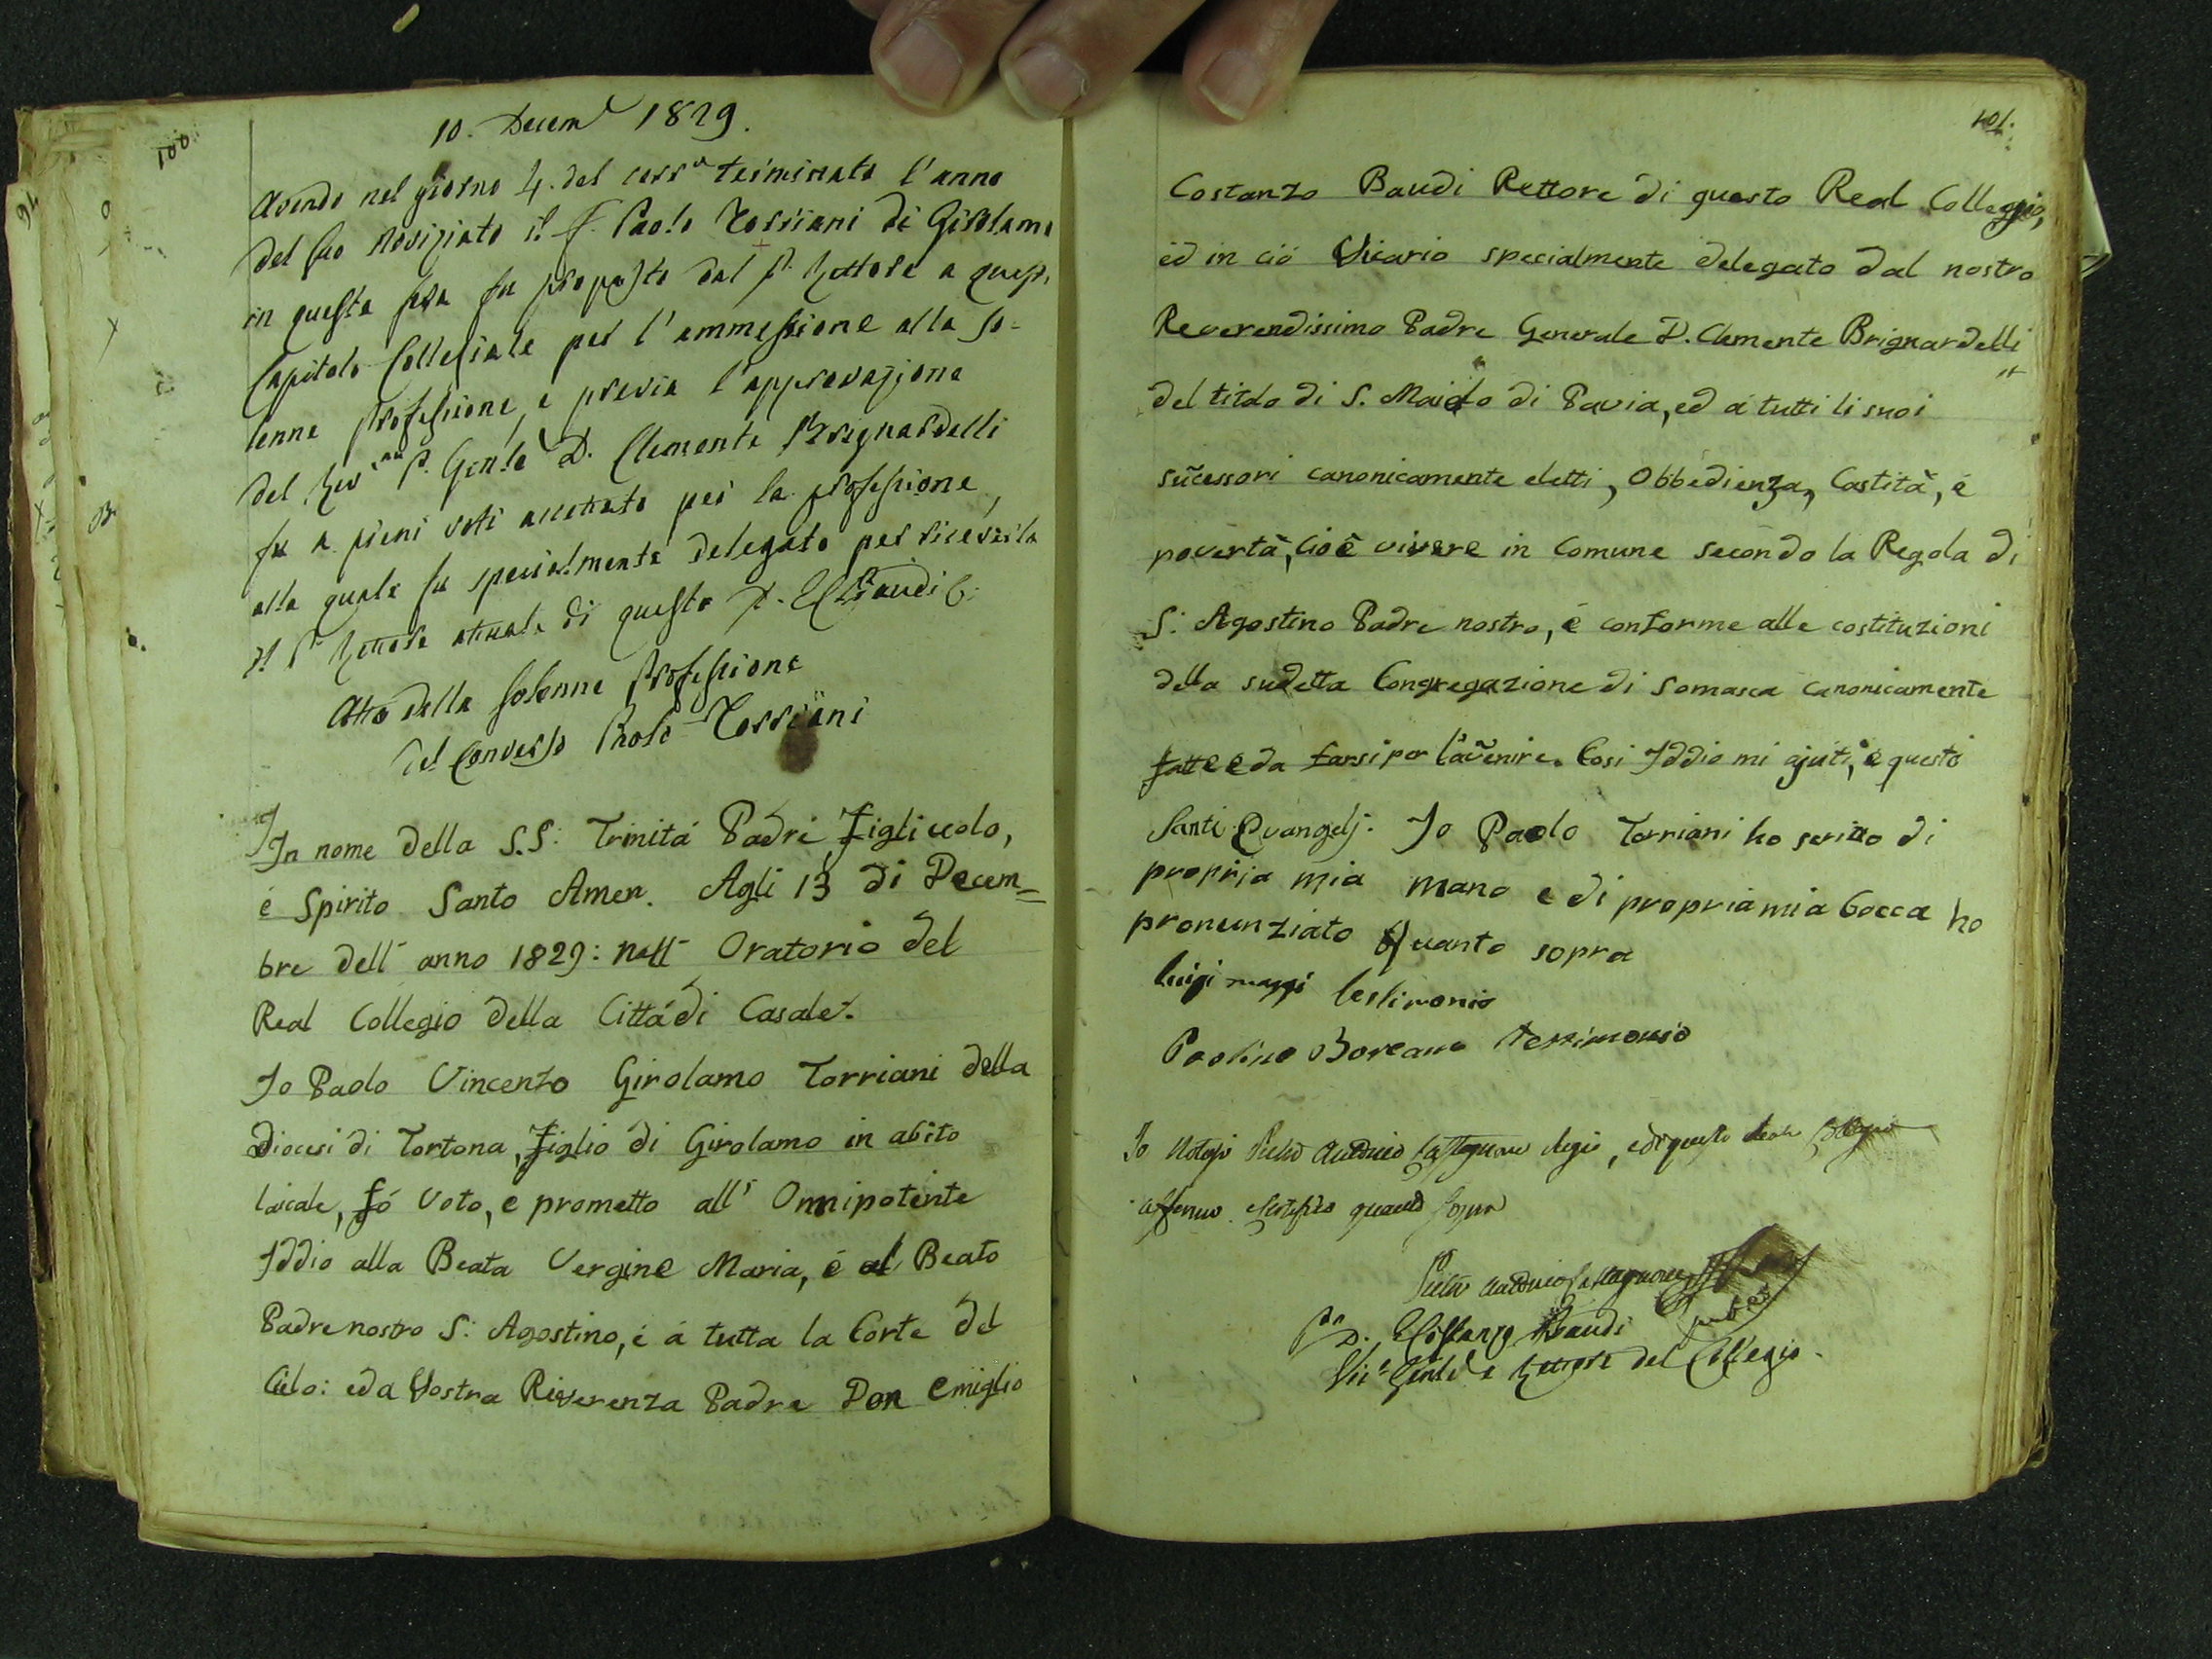 100.
10. Decem.e 1829.
Avendo nel giorno 4. del corr.e terminato l'anno
del suo noviziato il F. Paolo Torriani di Girolamo
in questa sera fu proposto dal P. Rettore a questo
Capitolo Collegiale per l'ammessione alla so=
lenne professione, e previa l'approvazione
del Rev.mo P. Gen.le D. Clemente Brignardelli
fu a pieni voti accettato per la professione,
alla quale fu specialmente delegato per riceverla
il P. Rettore attuale di questo P. E. C. Baudi C.
Atto della solenne Professione
del Converso Paolo Torriani
In nome della S.S: Trinitá Padre Figliuolo,
é Spirito Santo Amen. Agli 13 di Decem=
bre dell' anno 1829: nell' Oratorio del
Real Collegio della Cittá di Casale.
Io Paolo Vincenzo Girolamo Torriani della
Diocesi di Tortona, figlio di Girolamo in abito
laicale, fó voto, e prometto all' Onnipotente
Iddio alla Beata Vergine Maria, é al Beato
Padre nostro S: Agostino, é á tutta la Corte del
Cielo: ed a Vostra Riverenza Padre Don Emiglio
101.
Costanzo Baudi Rettore di questo Real Colleggio,
ed in ció Vicario specialmente delegato dal nostro
Reverendissimo Padre Generale D. Clemente Brignardelli
del titolo di S. Maiolo di Pavia, ed á tutti li suoi
sucessori canonicamente eletti, Obbedienza, Castitá, é
povertá, cioé vivere in Comune secondo la Regola di
S: Agostino Padre nostro, é conforme alle costituzioni
della sudetta Congregazione di Somasca canonicamente
fatte e da farsi per l'avenire. Cosi Iddio mi ajuti, é questi
Santi Evangelj. Io Paolo Torriani ho scritto di
propria mia mano e di propria mia bocca ho
pronunziato quanto sopra
Luigi maggi testimonio
Paolino Boreano testimonio
Io Notajo Pietro Antonio Castagnone Regio, ed di questo Real Collegio
affermo quanto sopra
Pietro Antonio Castagnone
D. E. Costanzo Baudi
Vic.o Gen.le e Rettore del Collegio.